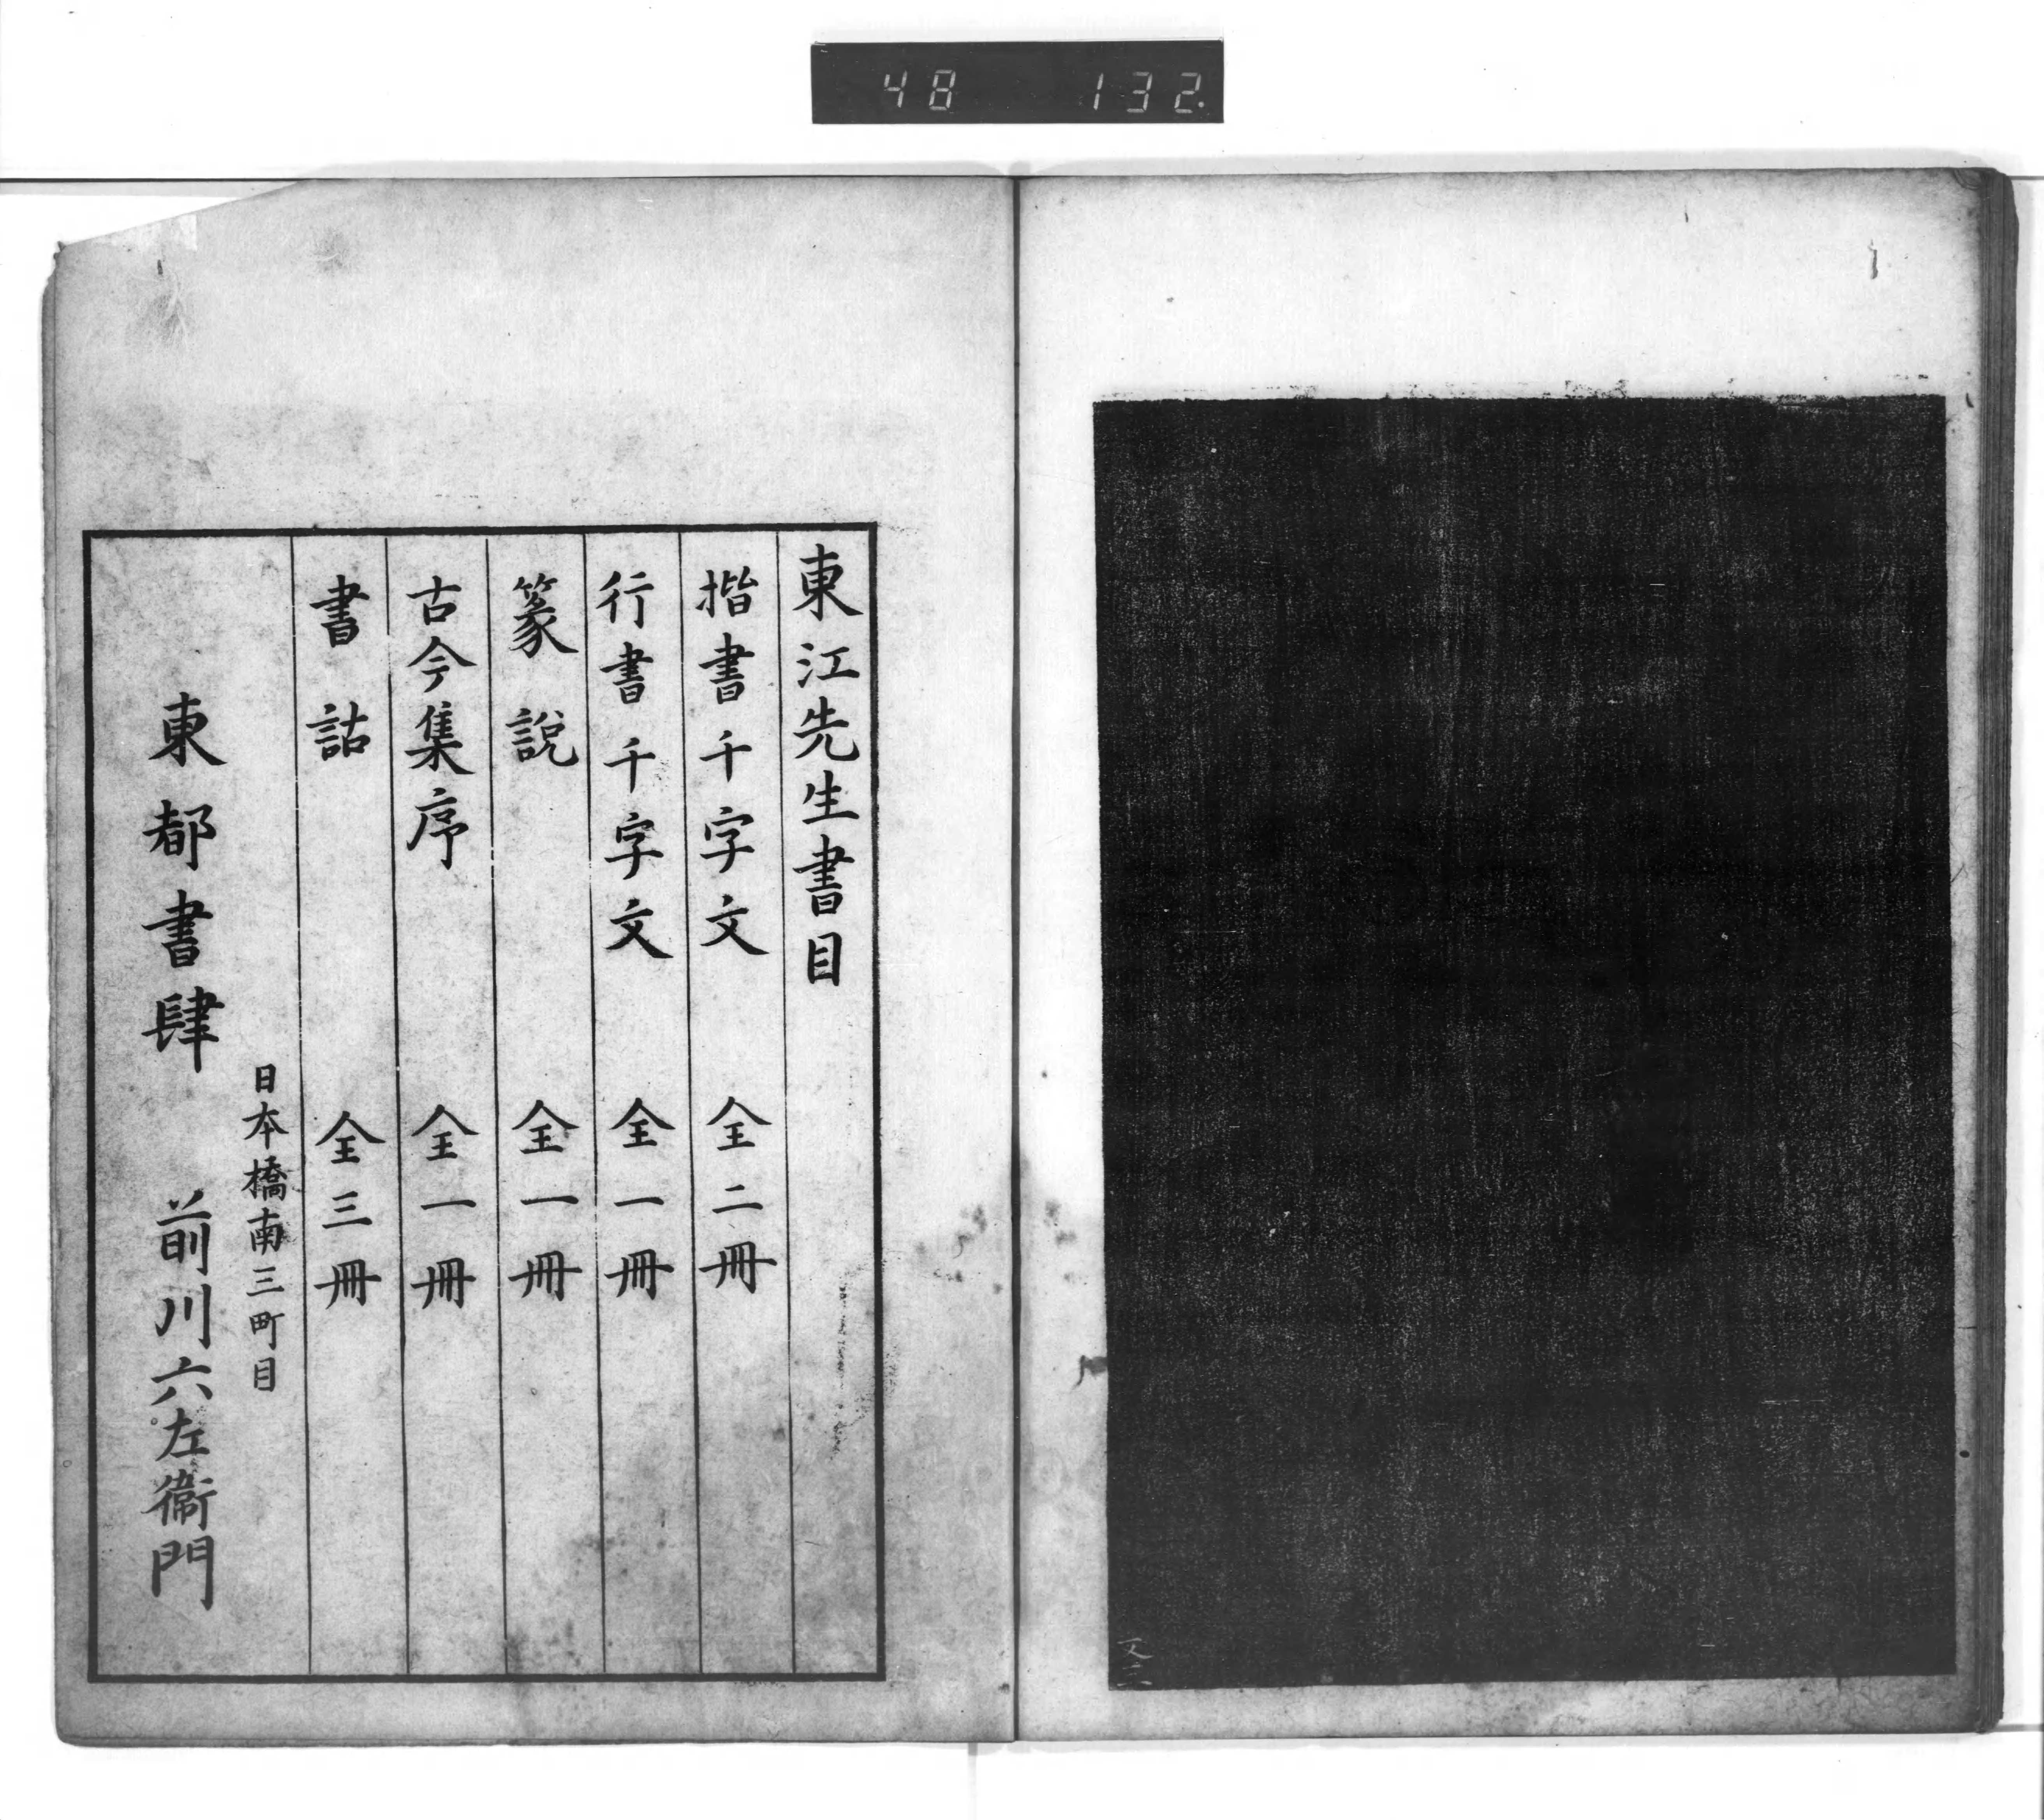 48 132.
又二
東江先生書目
揩書千字文 全二冊
行書千字文 全一冊
篆說 全一冊
古今集序 全一冊
書詁 全三冊
日本橋南三町目
東都書肆 前川六左衞門